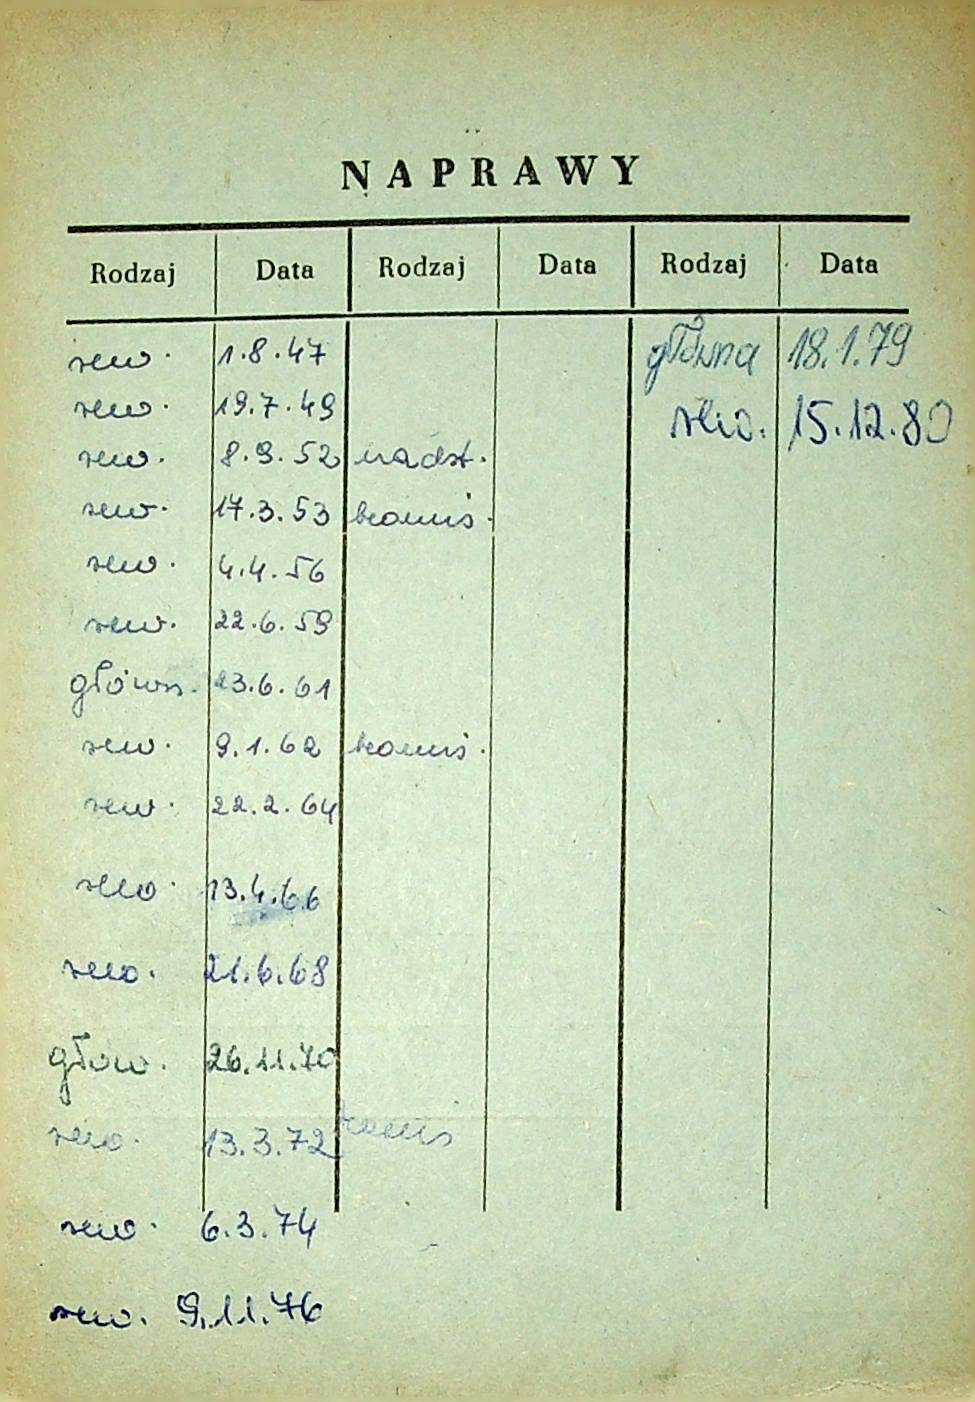 NAPRAWY
Rodzaj Data Rodzaj Data Rodzaj Data
rew. 1.8.47 główna 18.1.79
rew. 19.7.49 rew. 15.12.80
rew. 8.9.52 nadst.
rew. 17.3.53
rew. 4.4.56
rew. 22.6.59
główn. 23.6.61
rew. 9.1.62
rew. 22.2.64
rew. 13.4.66
rew. 21.6.68
głow. 26.11.70
rew. 13.3.72
rew. 6.3.74
rew. 9.11.76